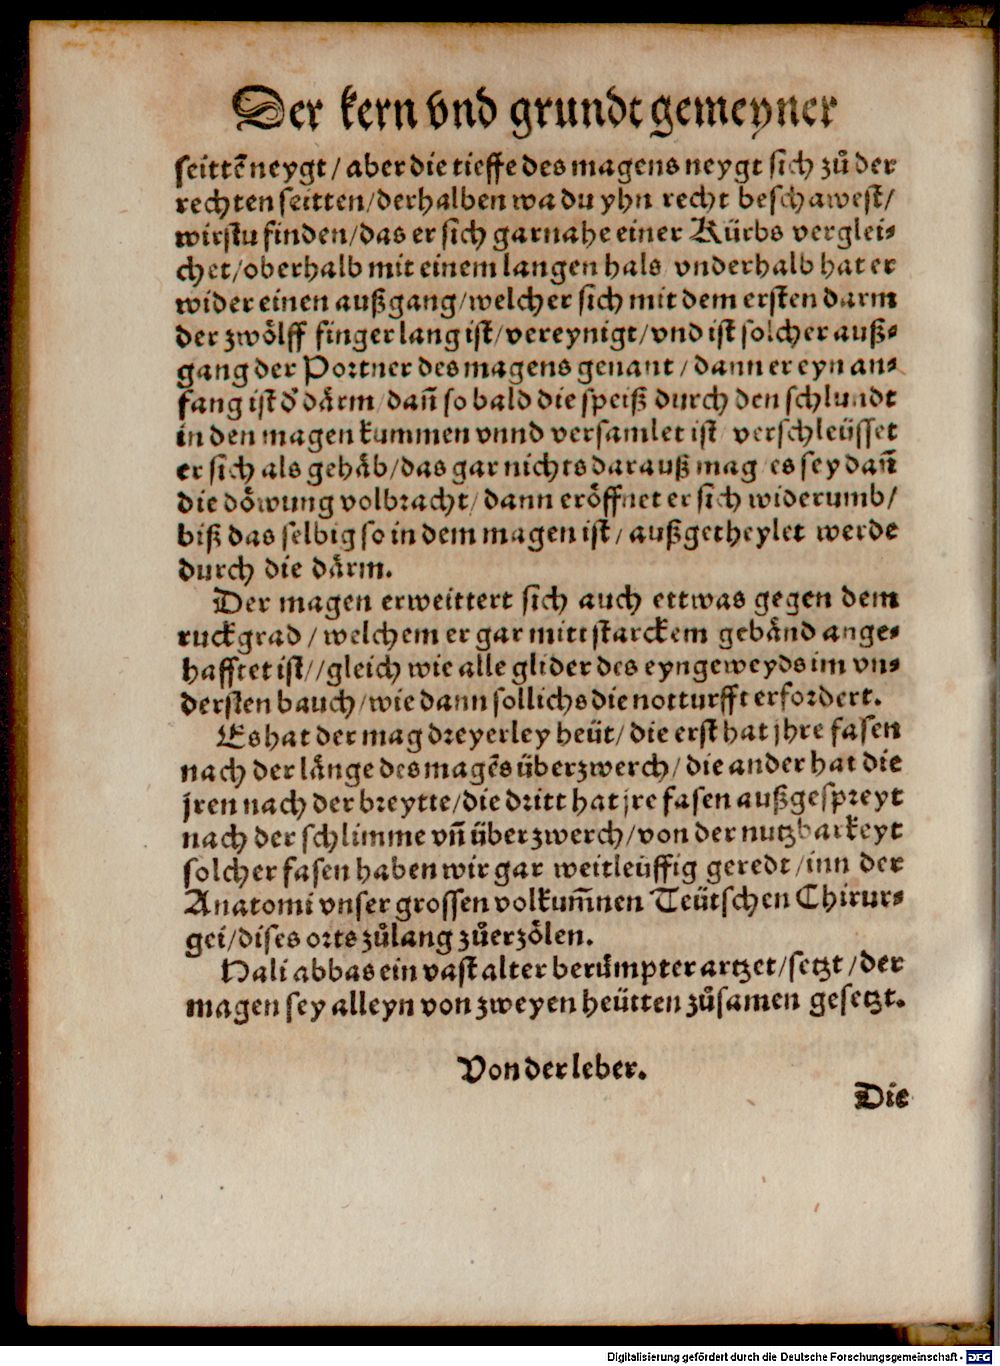 Der kern vnd grundt gemeyner
seittē neygt / aber die tieffe des magens neygt sich zů der
rechten seitten / derhalben wa du yhn recht beschawest /
wirstu finden / das er sich gar nahe einer Kürbs verglei⸗
chet / oberhalb mit einem langen hals vnderhalb hat er
wider einen außgang / welcher sich mit dem ersten darm
der zwölff finger lang ist / vereynigt / vnd ist solcher auß⸗
gang der Portner des magens genant / dann er eyn an⸗
fang ist d̕ därm / dañ so bald die speiß durch den schlundt
in den magen kummen vnnd versamlet ist / verschleüsset
er sich als gehäb / das gar nichts darauß mag / es sey dañ
die döwung volbracht / dann eröffnet er sich widerumb /
biß das selbig so in dem magen ist / außgetheylet werde
durch die därm.
Der magen erweittert sich auch ettwas gegen dem
ruckgrad / welchem er gar mitt starckem gebänd ange⸗
hafftet ist / / gleich wie alle glider des eyngeweyds im vn⸗
dersten bauch / wie dann sollichs die notturfft erfordert.
Es hat der mag dreyerley heüt / die erst hat jhre fasen
nach der länge des magēs überzwerch / die ander hat die
jren nach der breytte / die dritt hat jre fasen außgespreyt
nach der schlimme vñ überzwerch / von der nutzbarkeyt
solcher fasen haben wir gar weitleüffig geredt / inn der
Anatomi vnser grossen volkum̃nen Teütschen Chirur⸗
gei / dises orts zůlang zůerzölen.
Hali abbas ein vast alter berümpter artzet / setzt / der
magen sey alleyn von zweyen heütten zůsamen gesetzt.
Von der leber.
Die
Digitalisierung gefördert durch die Deutsche Forschungsgemeinschaft - DFG